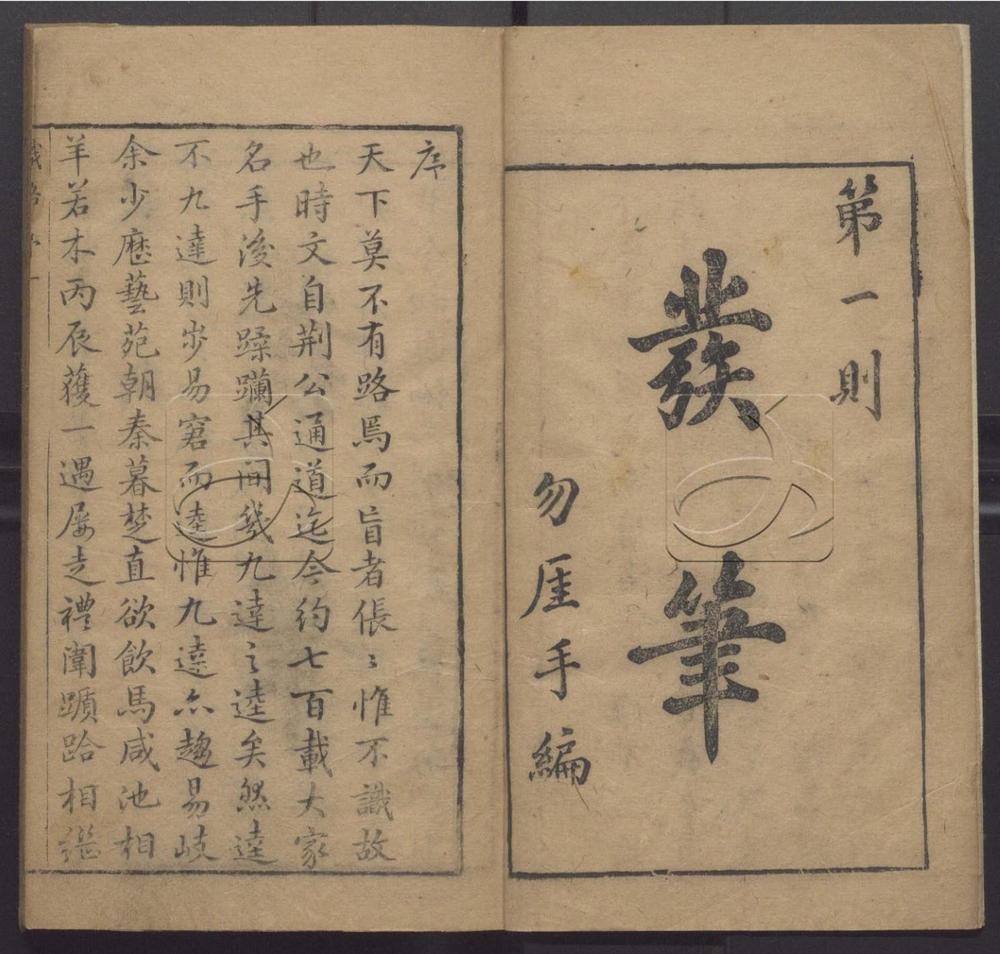 第一則
發筆
勿厓手編
序
天下莫不有路焉而盲者倀〻惟不識故
也時文自荆公通道迄今約七百載大家
名手後先蹂躝其间幾九達之逵矣然逵
不九達則步易窘而逵惟九達亦趨易岐
余少歷藝苑朝秦暮楚直欲飲馬咸池相
羊若木丙辰獲一遇屡走禮闈躓跲相繼